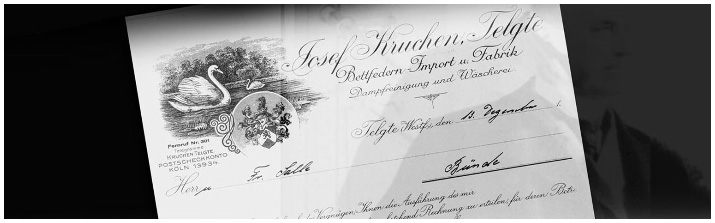 Josef Kruchen, Telgte
Bettfedern-Import u. Fabrik
Dampfreinigung und Wäscherei
Fernruf Nr. 201
Telegramme
KRUCHEN TELGTE
POSTSCHECKKONTO
KÖLN 13934.
Telgte Westf., den 13. Dezember
Herrn Fr. Salle
Bünde
Vergnügen, Ihnen die Ausführung des mir
Rechnung zu erteilen, für deren Betr